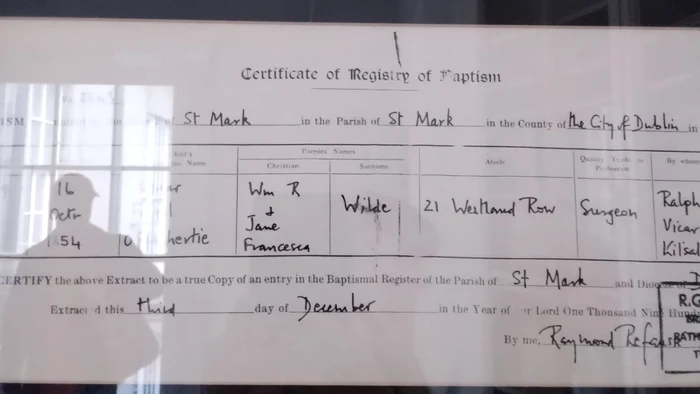 Certificate of Registry of Baptism
ISM St Mark in the Parish of St Mark in the County of the City of Dublin in
Parents Names
Name Christian Surname Abode Quality Trade or Profession By whom
16 Wm R Wilde 21 Westland Row Surgeon Ralph
Octr & Vicar
Jane Kilsal
54 hertie Francesca
CERTIFY the above Extract to be a true Copy of an entry in the Baptismal Register of the Parish of St Mark and
Extracted this third day of December in the Year of our Lord One Thousand Nine
By me, Raymond
R.G